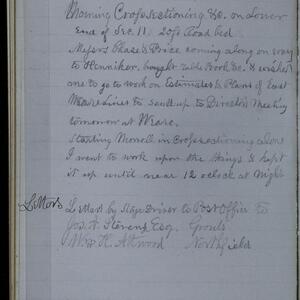 Morning Crossectioning &c. on Lower
End of Sec. 11. 20ft Road bed
Messrs Chase & Price coming along on way
to Henniker. bought Table Book &c. & wished
me to go to work on Estimates & Plans of East
Weare Lines to send up to Directors Meeting
tomorrow at Weare.
Starting Morrell in Crossectioning alone
I went to work upon the things & kept
it up until near 12 oclock at Night
Letters Letters by Stage Driver to Post Office to
Jos. A. Stevens Esq.
Wm H. Attwood Northfield